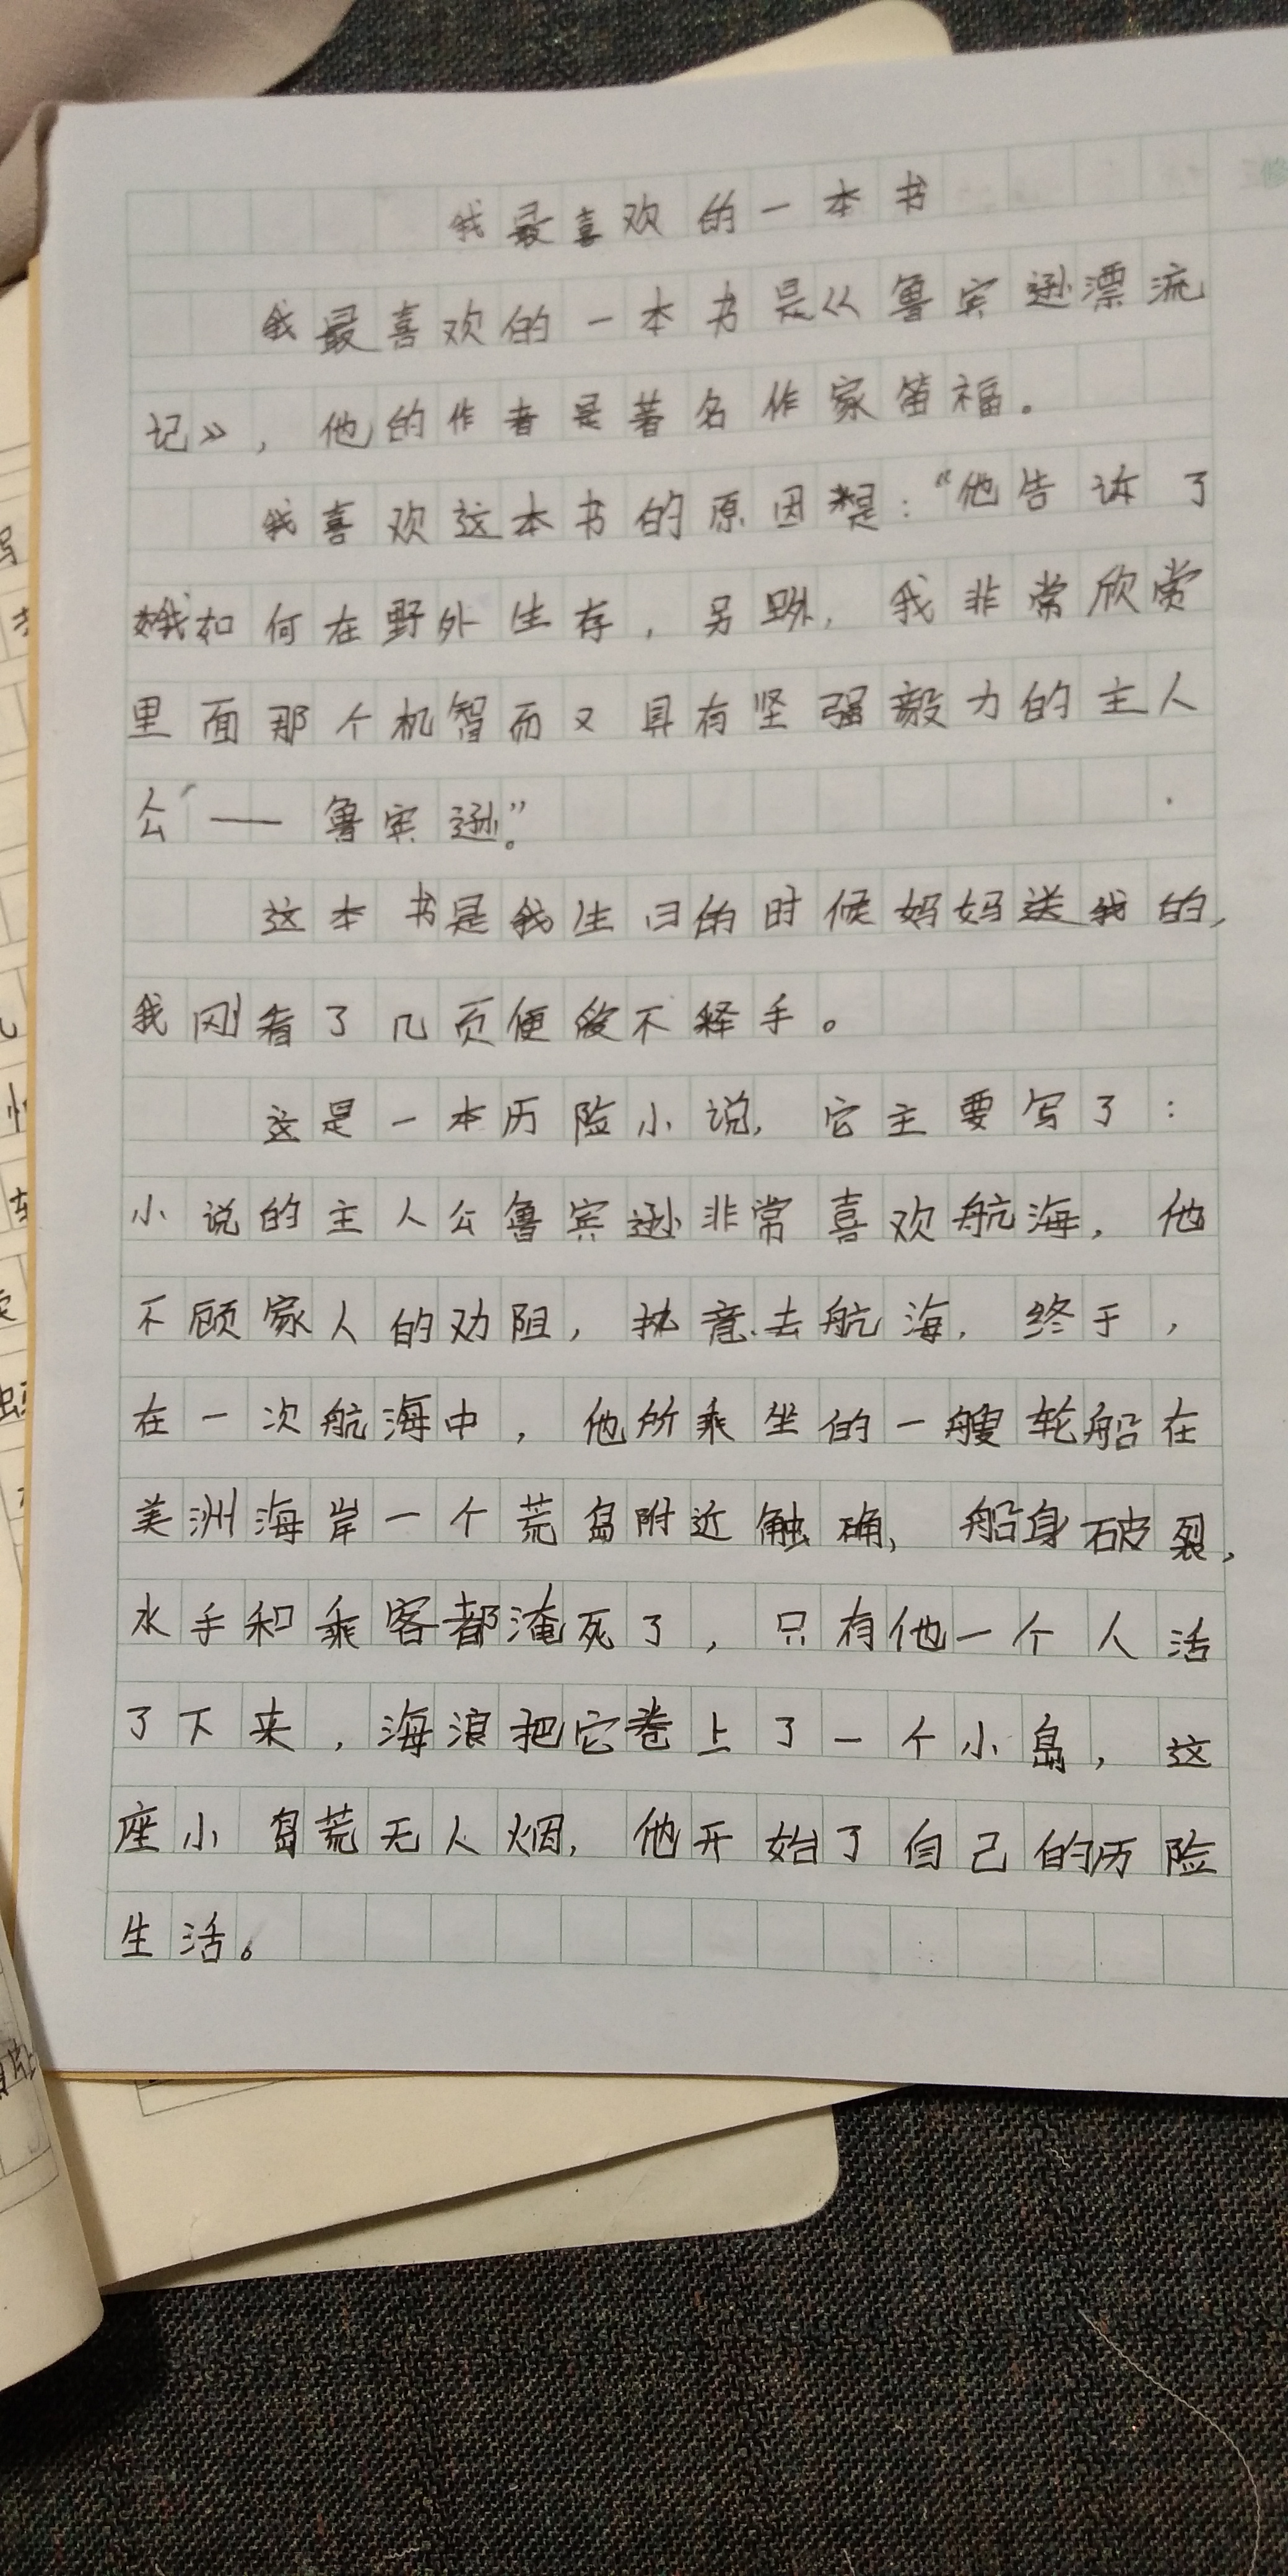 我最喜欢的一本书
我最喜欢的一本书是《鲁宾逊漂流
记》，他的作者是著名作家笛福。
我喜欢这本书的原因是：“他告诉了
我如何在野外生存，另外，我非常欣赏
里面那个机智而又具有坚强毅力的主人
公——鲁宾逊”。
这本书是我生日的时候妈妈送我的，
我刚看了几页便放不释手。
这是一本历险小说，它主要写了：
小说的主人公鲁宾逊非常喜欢航海，他
不顾家人的劝阻，执意去航海，终于，
在一次航海中，他所乘坐的一艘轮船在
美洲海岸一个荒岛附近触确，船身破裂，
水手和乘客都淹死了，只有他一个人活
了下来，海浪把它卷上了一个小岛，这
座小岛荒无人烟，他开始了自己的历险
生活。